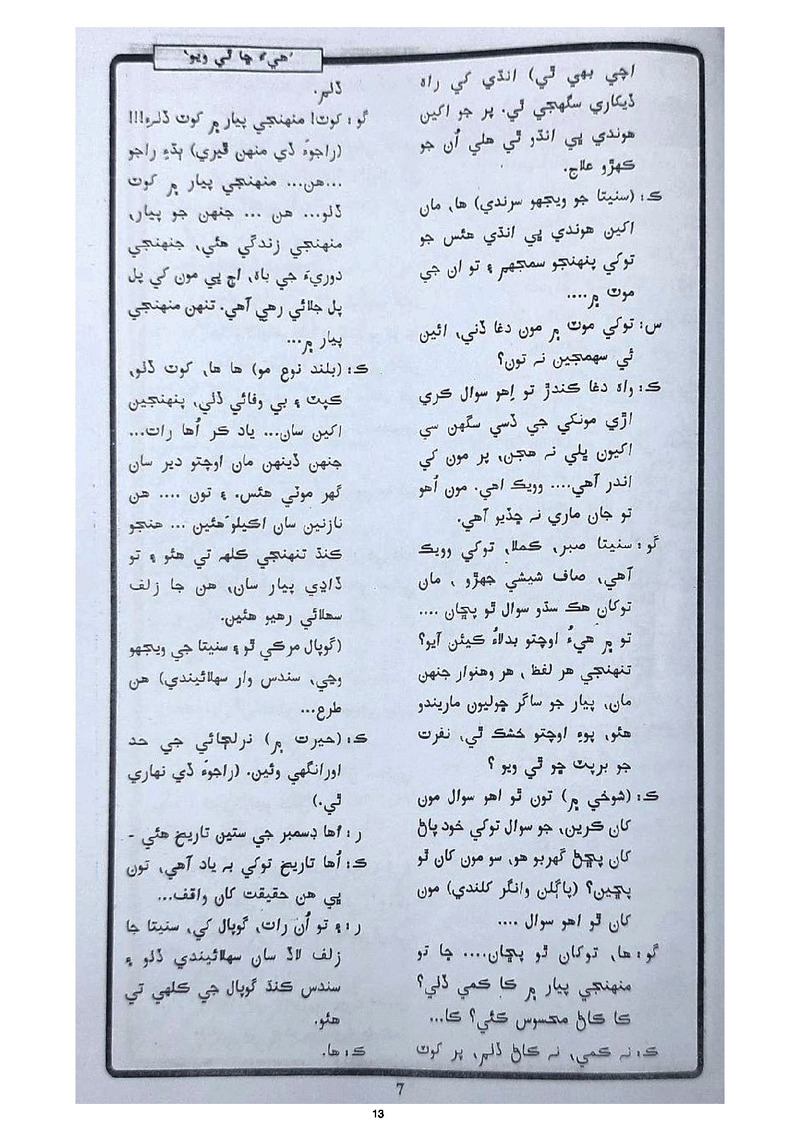 ’هيءَ ڇا ٿي ويو‘
اچي بهي ٿي) انڌي کي راه
ڏيکاري سگهجي ٿي. پر جو اکين
هوندي پي انڌو ٿي هلي اُن جو
ڪهڙو علاج.
ڪ: (سنيتا جو ويجهو سرندي) ها، مان
اکين هوندي پي انڌي هئس جو
توکي پنهنجو سمجهم ۽ تو ان جي
موٽ ۾....
س: توکي موٽ ۾ مون دغا ڏني، ائين
ئي سهمجين نہ تون؟
ڪ: واه دغا ڪندڙ تو اِهو سوال ڪري
اڙي مونکي جي ڏسي سگهن سي
اکيون ڀلي نہ هجن، پر مون کي
اندر آهي.... وويڪ اهي. مون اُهو
تو جان ماري نہ ڇڏيو آهي.
گو: سنيتا صبر، ڪملا، توکي وويڪ
آهي، صاف شيشي جهڙو ، مان
توکان هڪ سڌو سوال ٿو پڇان ....
تو ۾ هيءُ اوچتو بدلاءُ ڪيئن آيو؟
تنهنجي هر لفظ ، هر وهنوار جنهن
مان، پيار جو ساگر ڇوليون ماريندو
هئو، پوءِ اوچتو خشڪ ٿي، نفرت
جو برپٽ ڇو ٿي ويو ؟
ڪ: (شوخي ۾) تون ٿو اهو سوال مون
کان ڪرين، جو سوال توکي خود پاڻ
کان پڇڻ گهربو هو، سو مون کان ٿو
پڇين؟ (پاڳلن وانگر کلندي) مون
کان ٿو اهو سوال ....
گو: ها، توکان ٿو پڇان.... ڇا تو
منهنجي پيار ۾ ڪا ڪمي ڏلي؟
ڪا ڪاڻ محسوس ڪئي؟ ڪا...
ڪ: نہ ڪمي، نہ ڪاڻ ڏٺم، پر کوٽ
ڏلم.
گو: کوٽ! منهنجي پيار ۾ کوٽ ڏلءِ!!!
(راجوءَ ڏي منهن ڦيري) ٻڌءِ راجو
...هن... منهنجي پيار ۾ کوٽ
ڏلو... هن ... جنهن جو پيار،
منهنجي زندگي هئي، جنهنجي
دوريءَ جي باه، اڄ پي مون کي پل
پل جلائي رهي آهي. تنهن منهنجي
پيار ۾...
ڪ: (بلند نوع مو) ها ها، کوٽ ڏلو،
ڪپٽ ۽ بي وفائي ڏلي، پنهنجين
اکين سان... ياد ڪر اُها رات...
جنهن ڏينهن مان اوچتو دير سان
گهر موٽي هئس. ۽ تون .... هن
نازنين سان اڪيلو هئين ... هنجو
ڪنڌ تنهنجي ڪلهه تي هئو ۽ تو
ڏاڍي پيار سان، هن جا زلف
سهلائي رهيو هئين.
(گوپال مرڪي ٿو ۽ سنيتا جي ويجهو
وڃي، سندس وار سهلائيندي) هن
طرح...
ڪ: (حيرت ۾) نرلڄائي جي حد
اورانگهي وئين. (راجوءَ ڏي نهاري
ٿي.)
ر: اُها ڊسمبر جي ستين تاريخ هئي -
ڪ: اُها تاريخ توکي بہ ياد آهي، تون
پي هن حقيقت کان واقف...
ر: ۽ تو اُن رات، گوپال کي، سنيتا جا
زلف لاڏ سان سهلائيندي ڏلو ۽
سندس ڪنڌ گوپال جي ڪلهي تي
هئو.
ڪ: ها.
7
13